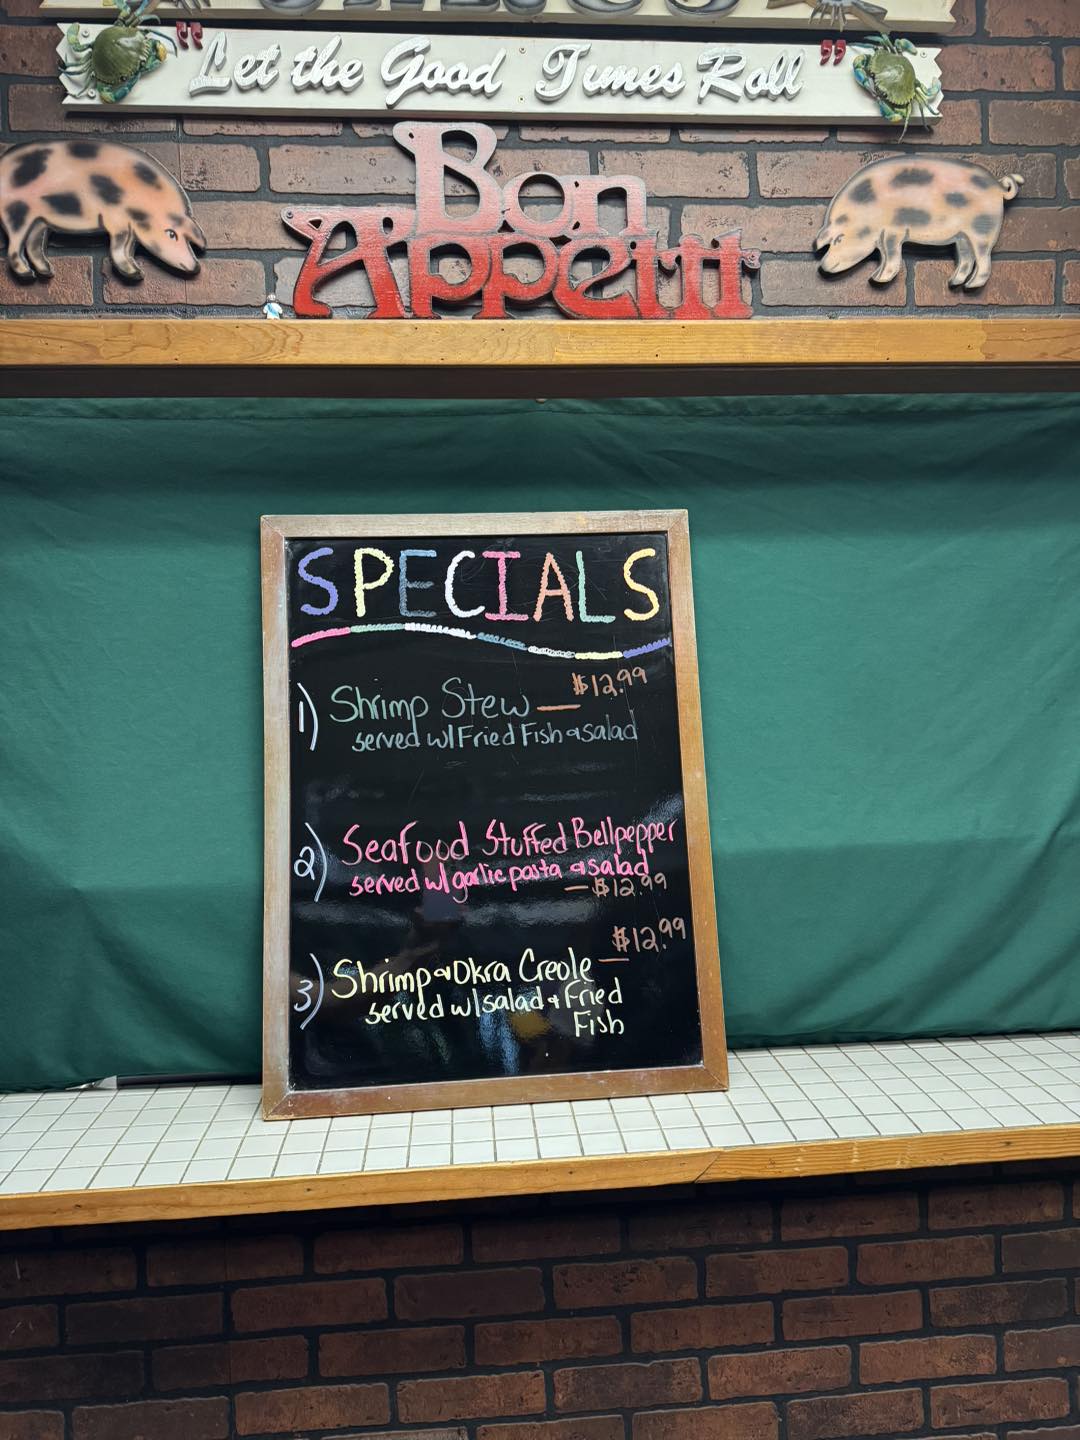 "Let the Good Times Roll"
Bon
Appetit
SPECIALS
1) Shrimp Stew — $12.99
served w/ Fried Fish & salad
2) Seafood Stuffed Bellpepper
served w/ garlic pasta & salad
— $12.99
3) Shrimp & Okra Creole — $12.99
served w/ salad & Fried
Fish